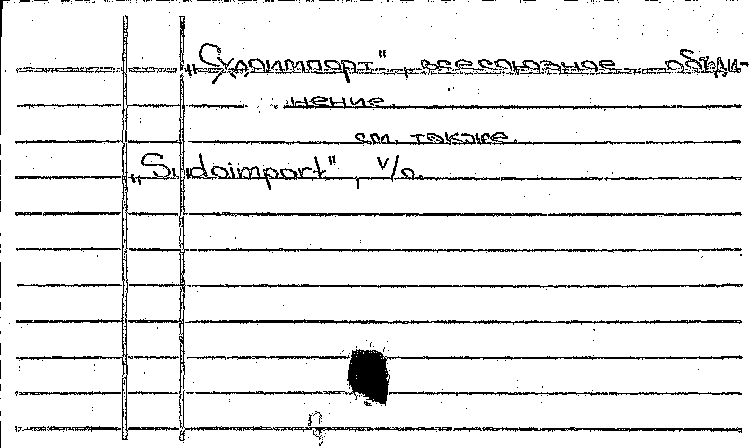 „Судоимпорт", всесоюзное объеди-
нение.
см. также
„Sudoimport", v/o.